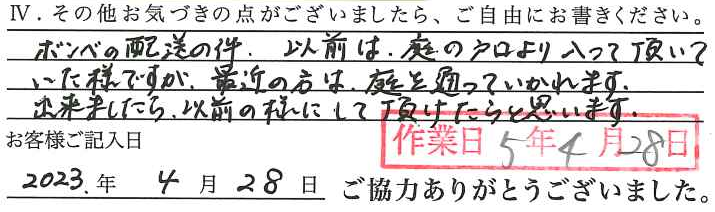 Ⅳ．その他お気づきの点がございましたら、ご自由にお書きください。
ボンベの配送の件．以前は．庭の戸口より入って頂いて
いた様ですが、最近の方は、庭を通っていかれます．
出来ましたら、以前の様にして頂けたらと思います．
お客様ご記入日
作業日 5年4月28日
2023.年 4月28日 ご協力ありがとうございました。